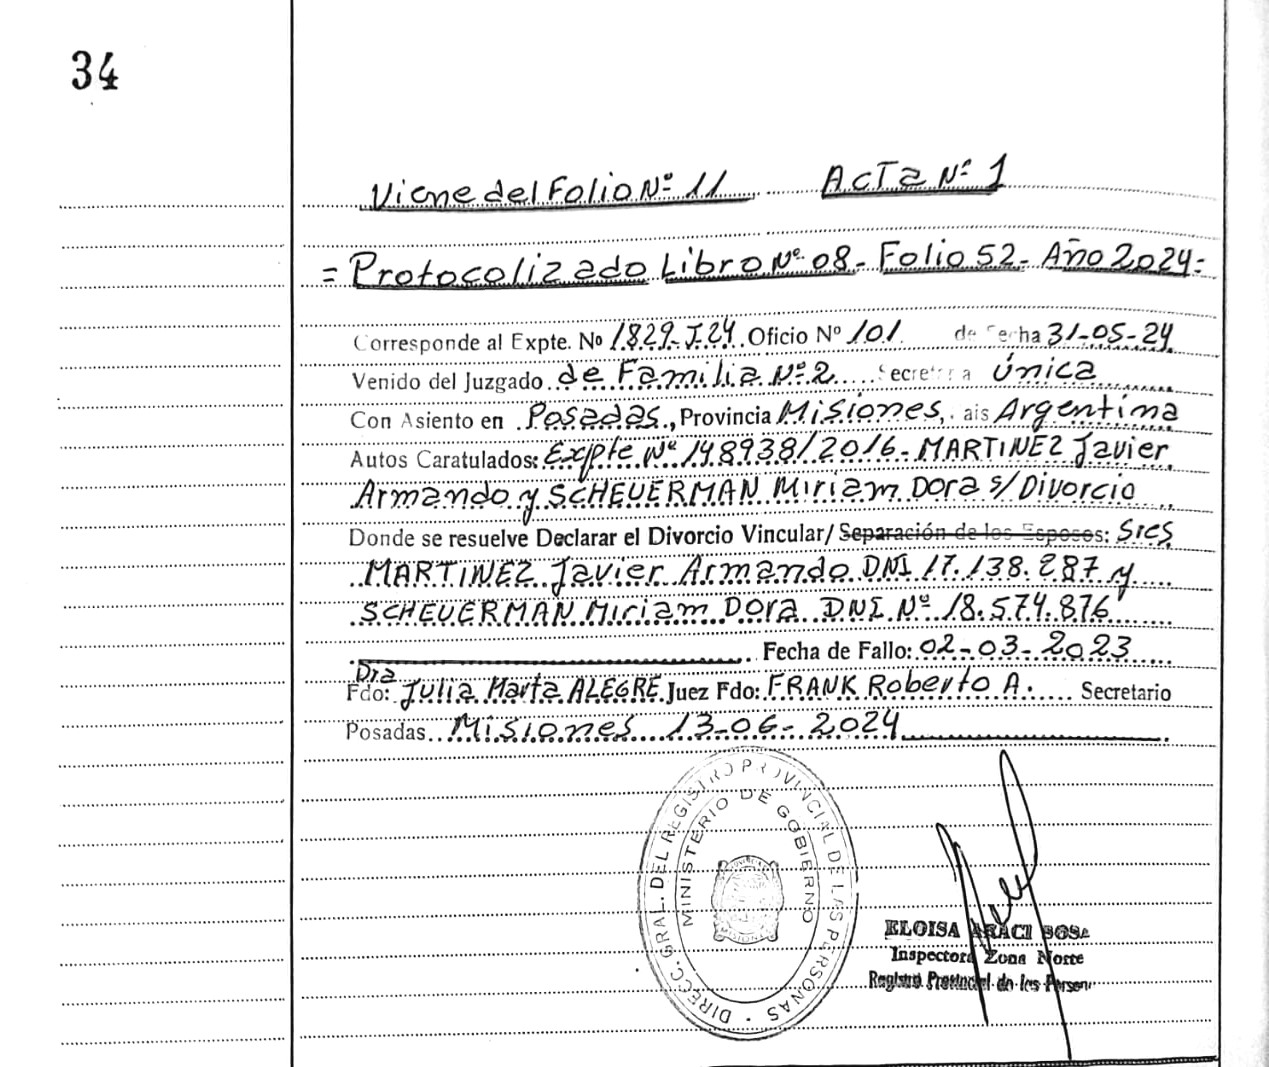 34
Viene del Folio Nº 11 Acta Nº 1
= Protocolizado Libro Nº 08- Folio 52- Año 2024-
Corresponde al Expte. Nº 1829-J-24 Oficio Nº 101 de Fecha 31-05-24
Venido del Juzgado de Familia Nº 2 Secret r a Única
Con Asiento en Posadas, Provincia Misiones, ais Argentina
Autos Caratulados: Expte Nº 148938/2016- MARTINEZ Javier
Armando y SCHEUERMAN Miriam Dora s/Divorcio
Donde se resuelve Declarar el Divorcio Vincular/ Separación de los Esposos: Sres
MARTINEZ Javier Armando DNI 17.138.287 y
SCHEUERMAN Miriam Dora DNI Nº 18.574.876
Fecha de Fallo: 02-03-2023
Dra
Fdo: Julia Marta ALEGRE Juez Fdo: FRANK Roberto A. Secretario
Posadas Misiones 13-06-2024
DIRECC. GRAL. DEL REGISTRO PROVINCIAL DE LAS PERSONAS
MINISTERIO DE GOBIERNO
ELOISA ARACI SOSA
Inspectora Zona Norte
Registro Provincial de las Person